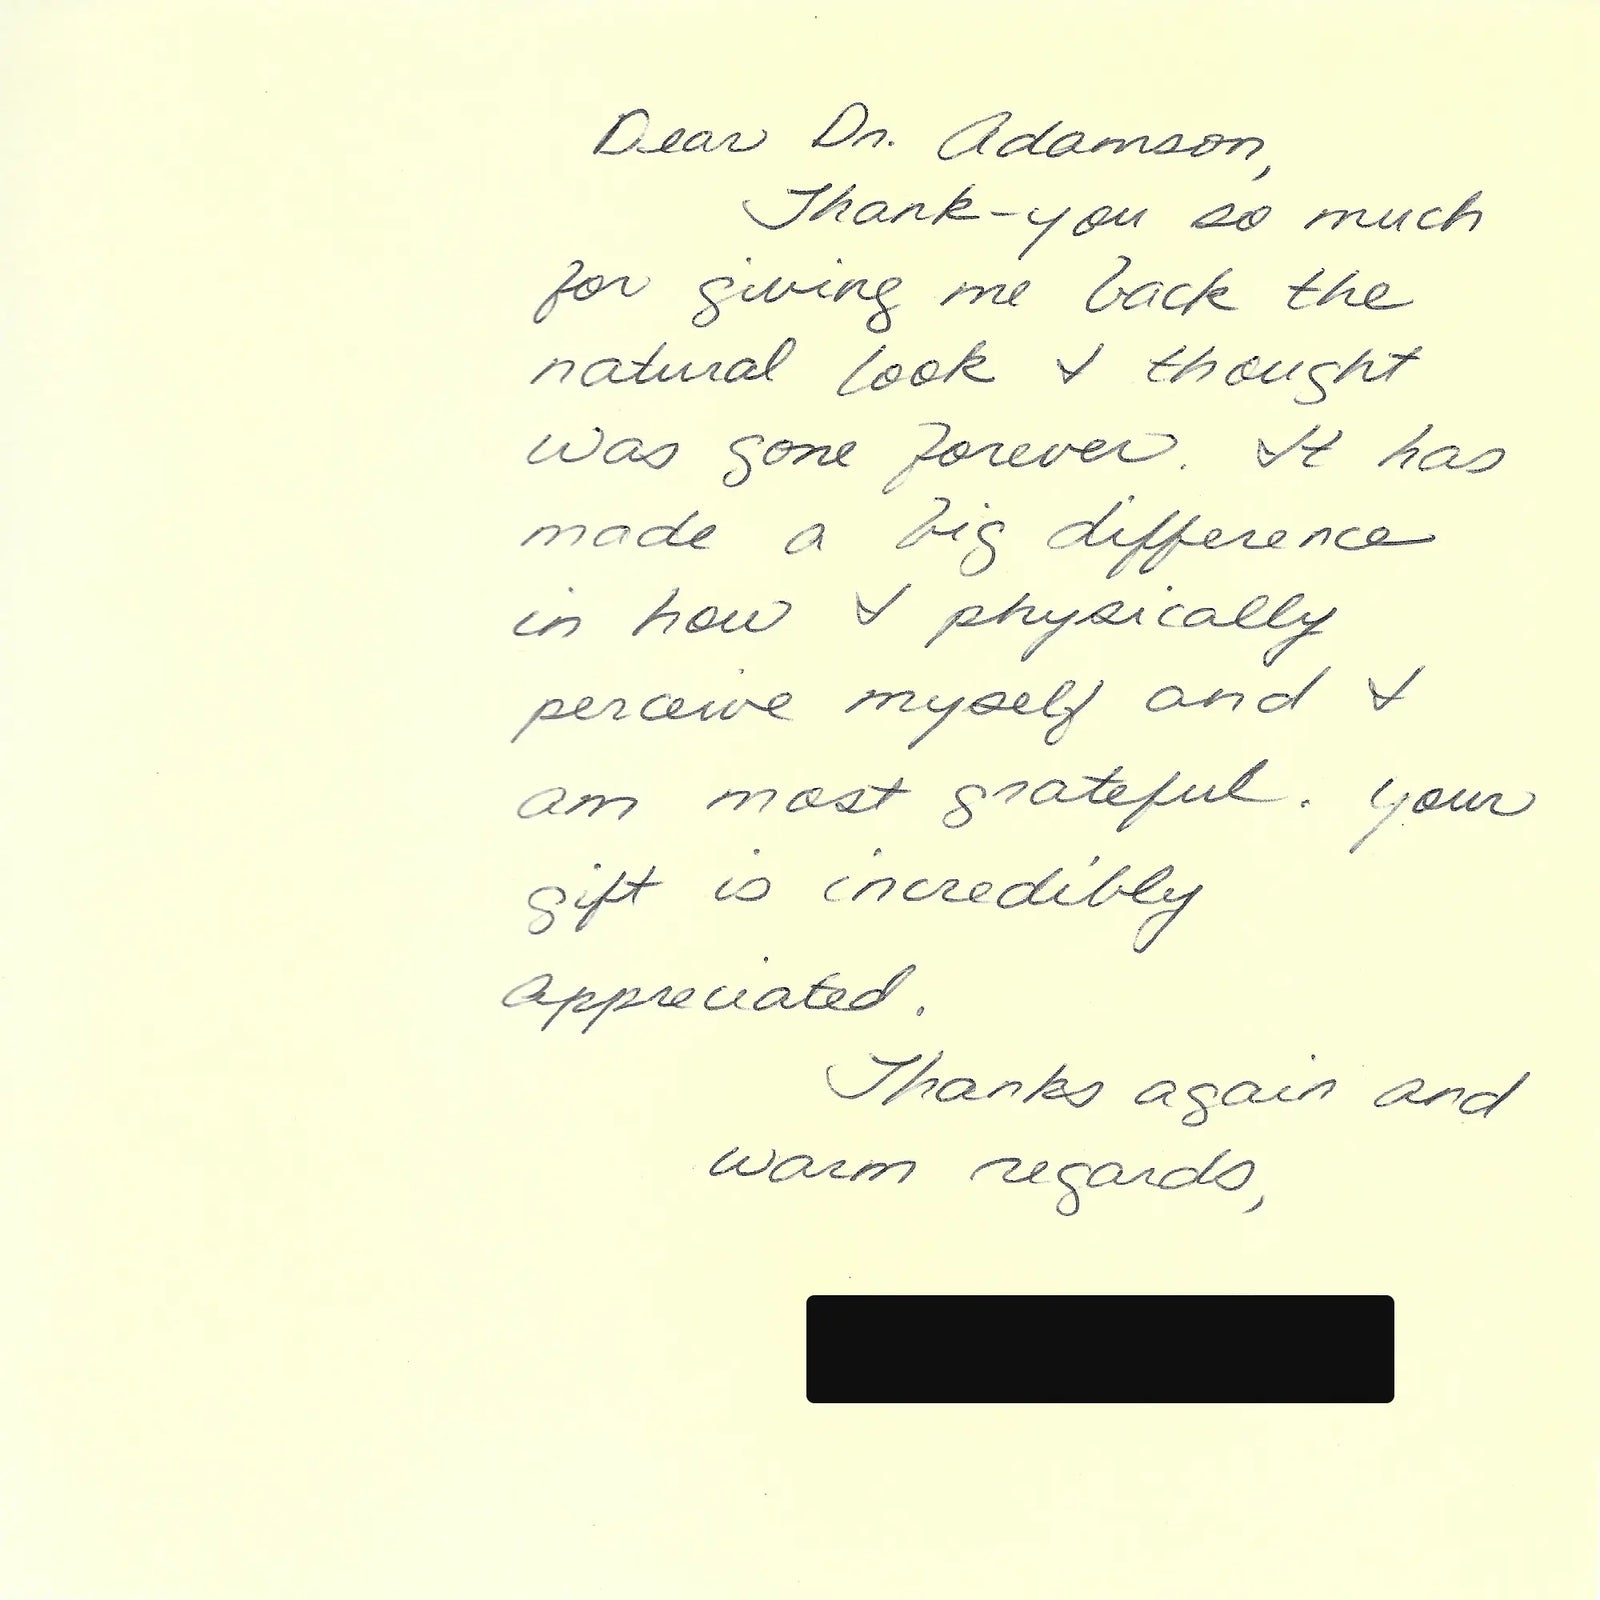 Dear Dr. Adamson,
Thank-you so much
for giving me back the
natural look I thought
was gone forever. It has
made a big difference
in how I physically
perceive myself and I
am most grateful. Your
gift is incredibly
appreciated.
Thanks again and
warm regards,